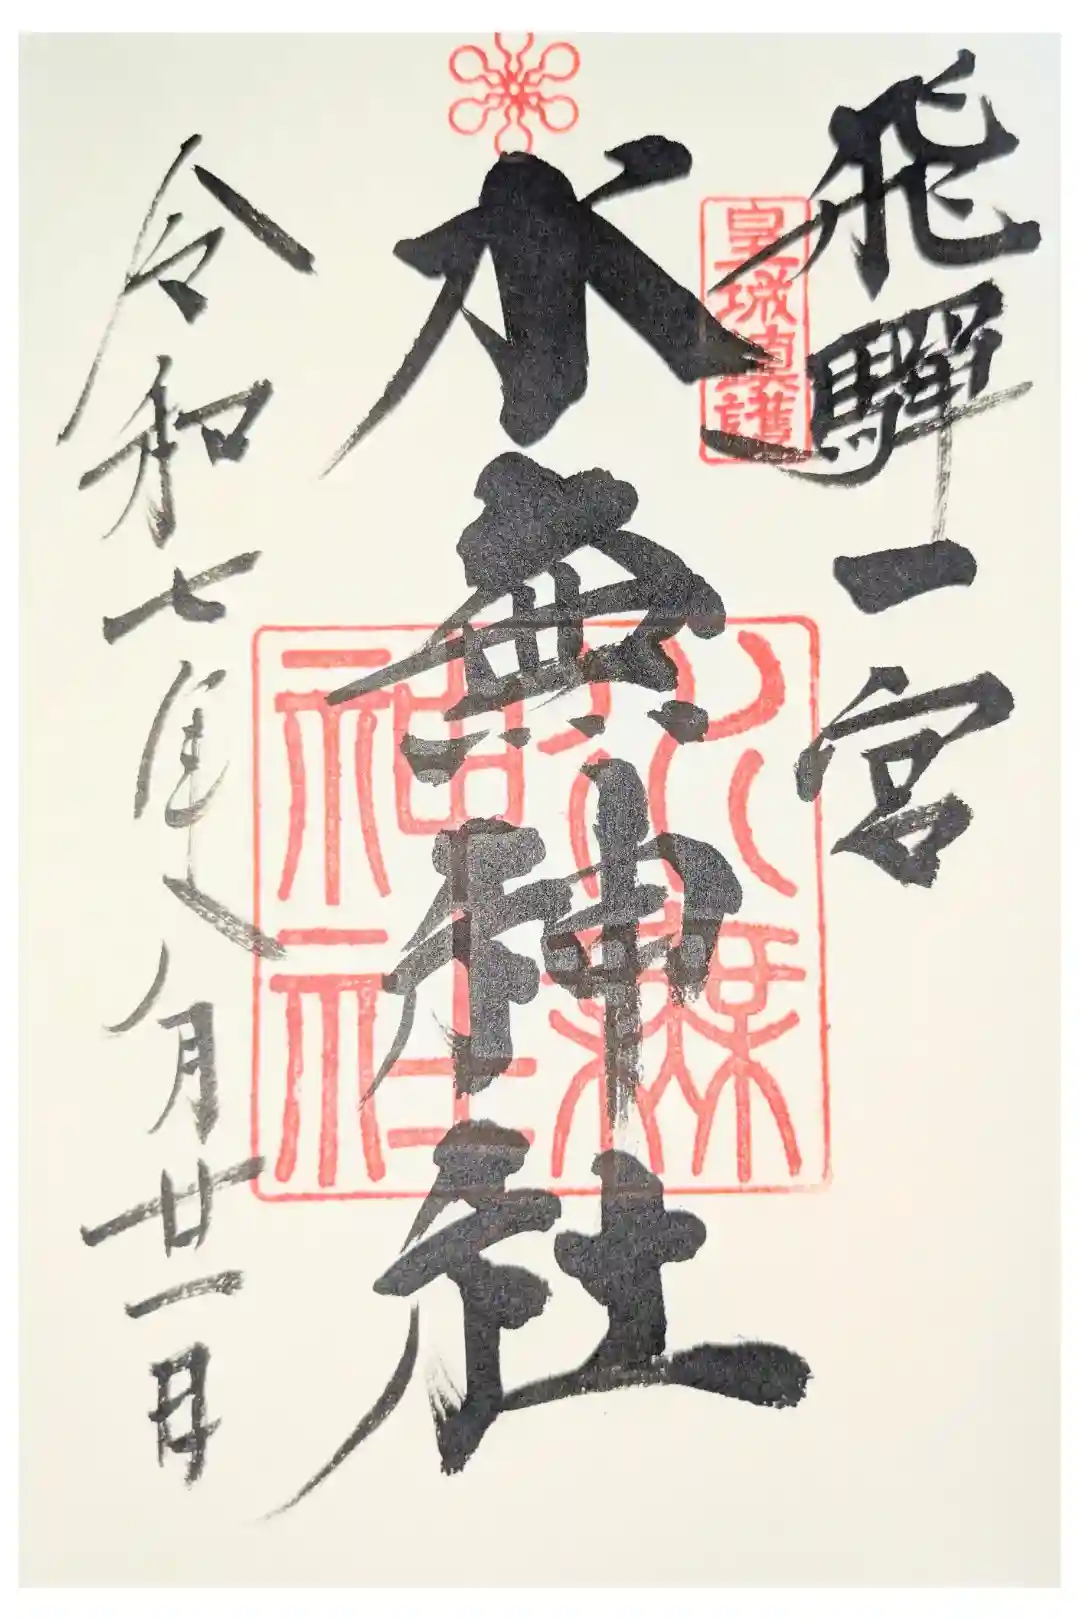 飛驒一宮
皇城鎮護
水無神社
水無神社
令和七年八月廿一日